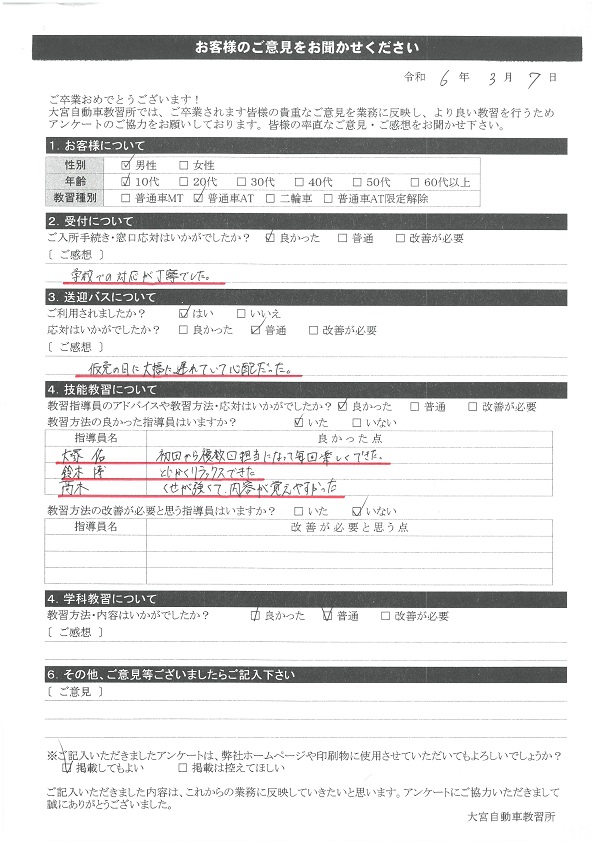 お客様のご意見をお聞かせください
令和 6 年 3 月 7 日
ご卒業おめでとうございます！
大宮自動車教習所では、ご卒業されます皆様の貴重なご意見を業務に反映し、より良い教習を行うため
アンケートのご協力をお願いしております。皆様の率直なご意見・ご感想をお聞かせ下さい。
1. お客様について
性別 ☑ 男性 □ 女性
年齢 ☑ 10代 □ 20代 □ 30代 □ 40代 □ 50代 □ 60代以上
教習種別 □ 普通車MT ☑ 普通車AT □ 二輪車 □ 普通車AT限定解除
2. 受付について
ご入所手続き・窓口応対はいかがでしたか？ ☑ 良かった □ 普通 □ 改善が必要
［ ご感想 ］
学校での対応が丁寧でした。
3. 送迎バスについて
ご利用されましたか？ ☑ はい □ いいえ
応対はいかがでしたか？ □ 良かった ☑ 普通 □ 改善が必要
［ ご感想 ］
仮免の日に大幅に遅れていて心配だった。
4. 技能教習について
教習指導員のアドバイスや教習方法・応対はいかがでしたか？ ☑ 良かった □ 普通 □ 改善が必要
教習方法の良かった指導員はいますか？ ☑ いた □ いない
指導員名 良かった点
大塚 佑 初回から複数回担当になって毎回楽しくできた。
鈴木 博 とにかくリラックスできた
高木 くせが強くて、内容が覚えやすかった
教習方法の改善が必要と思う指導員はいますか？ □ いた ☑ いない
指導員名 改善が必要と思う点
4. 学科教習について
教習方法・内容はいかがでしたか？ ☑ 良かった ☑ 普通 □ 改善が必要
［ ご感想 ］
6. その他、ご意見等ございましたらご記入下さい
［ ご意見 ］
※ご記入いただきましたアンケートは、弊社ホームページや印刷物に使用させていただいてもよろしいでしょうか？
☑ 掲載してもよい □ 掲載は控えてほしい
ご記入いただきました内容は、これからの業務に反映していきたいと思います。アンケートにご協力いただきまして
誠にありがとうございました。
大宮自動車教習所